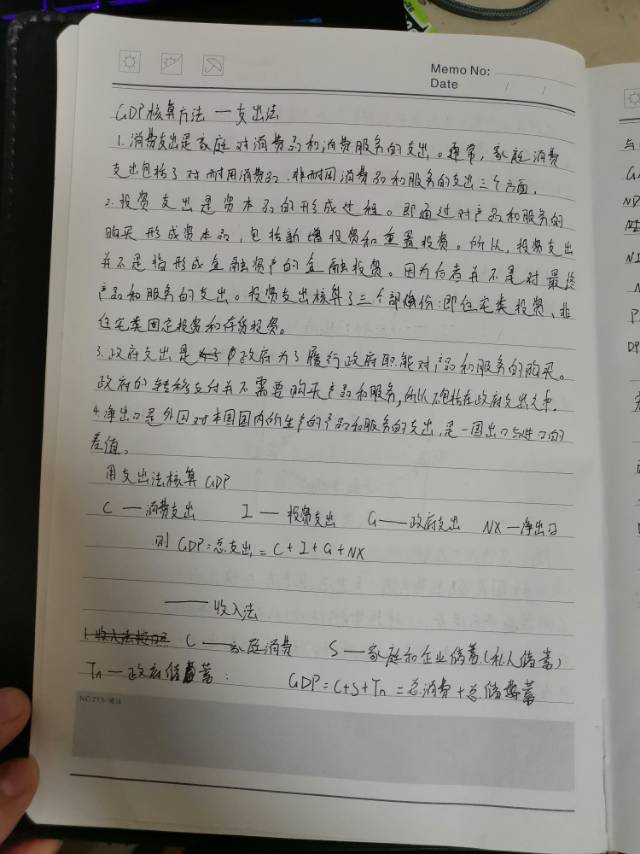 Memo No:
Date / /
GDP核算方法 — 支出法
1.消费支出是家庭对消费品和消费服务的支出。通常，家庭消费
支出包括了对耐用消费品、非耐用消费品和服务的支出三个方面。
2.投资支出是资本品的形成过程。即通过对产品和服务的
购买形成资本品，包括新增投资和重置投资。所以，投资支出
并不是指形成金融资产的金融投资。因为后者并不是对最终
产品和服务的支出。投资支出核算了三个部分：即住宅类投资、非
住宅类固定投资和存货投资。
3.政府支出是政府为了履行政府职能对产品和服务的购买。
政府的转移支付并不需要购买产品和服务，所以不包括在政府支出之中。
4.净出口是外国对本国国内所生产的产品和服务的支出，是一国出口与进口的
差值。
用支出法核算GDP
C — 消费支出 I — 投资支出 G — 政府支出 NX — 净出口
则 GDP=总支出=C+I+G+NX
—— 收入法
C — 家庭消费 S — 家庭和企业储蓄(私人储蓄)
Tn — 政府储蓄： GDP=C+S+Tn=总消费+总储蓄
与
G
ND
N
NI
N
P
DP